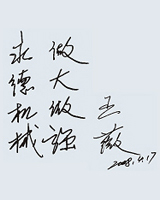 永德机械
做大做强
王薇
2008.4.17